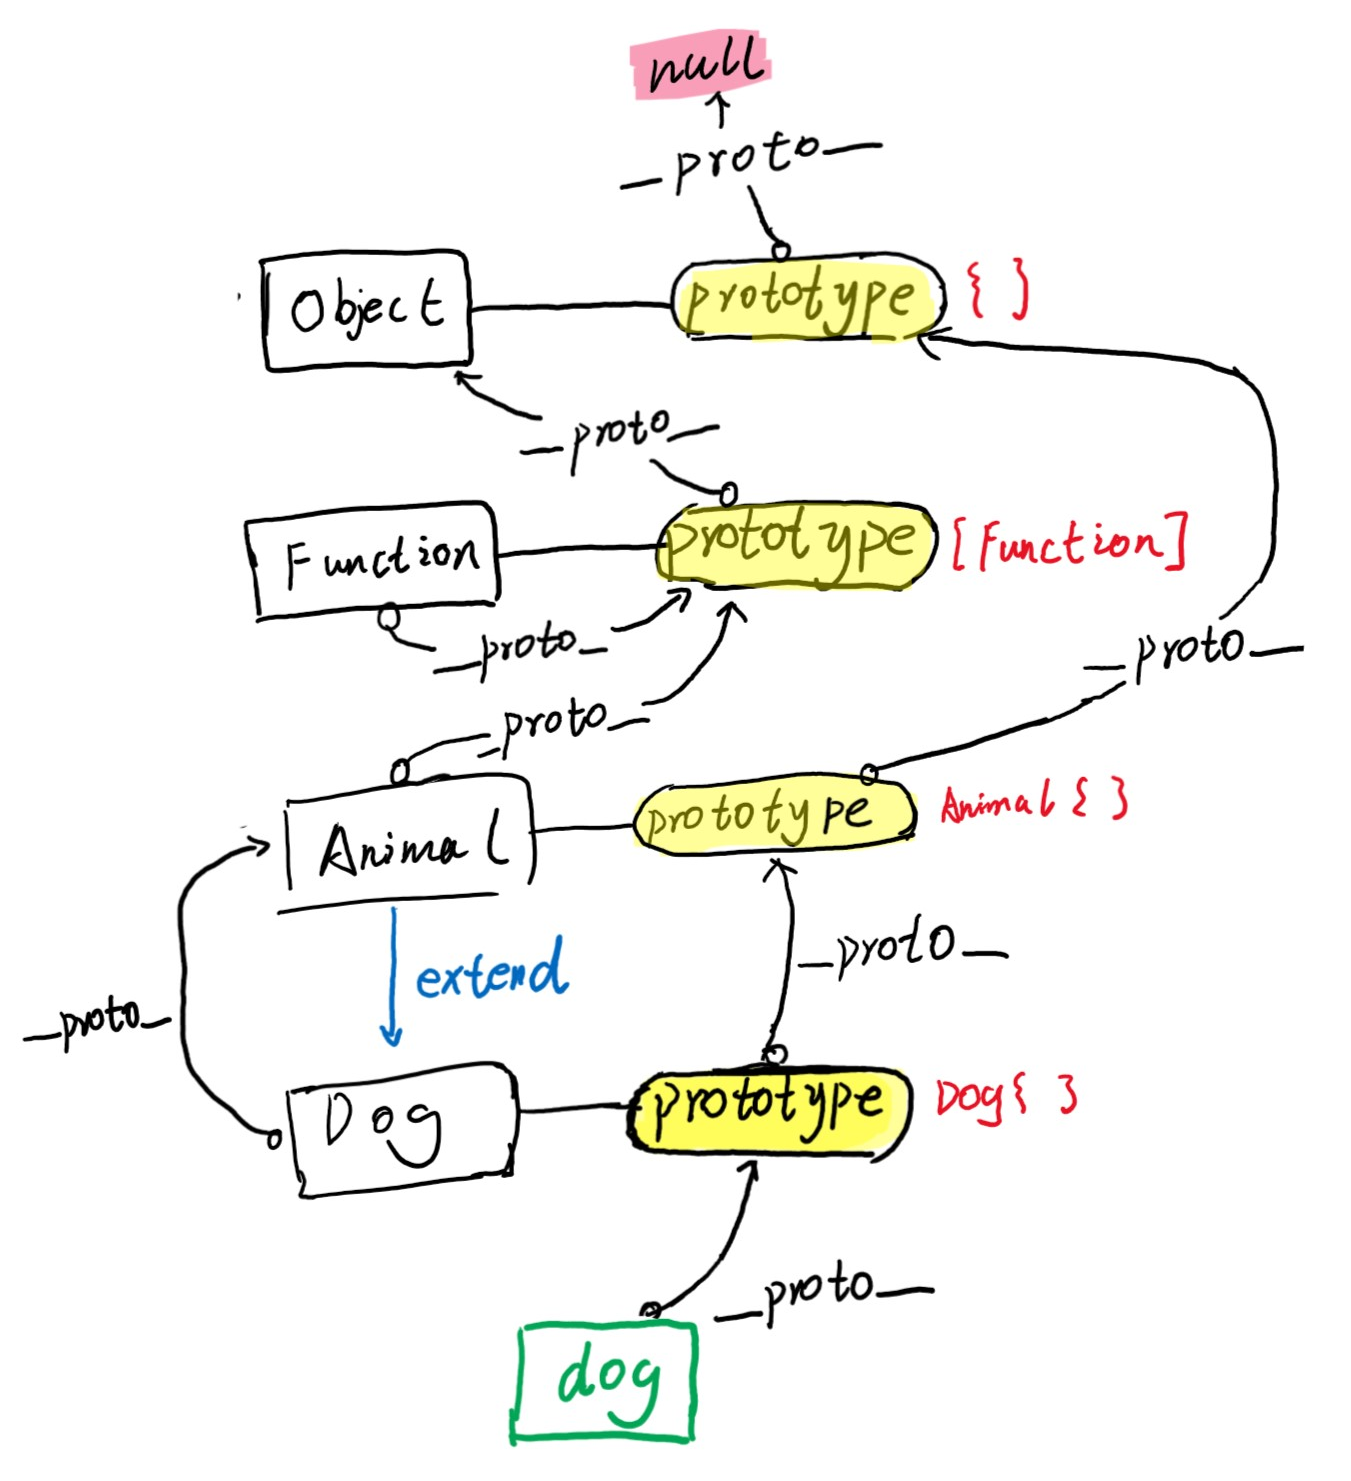 null
__proto__
Object
prototype
{ }
__proto__
Function
prototype
[Function]
__proto__
__proto__
__proto__
Animal
prototype
Animal { }
extend
__proto__
__proto__
Dog
prototype
Dog{ }
__proto__
dog